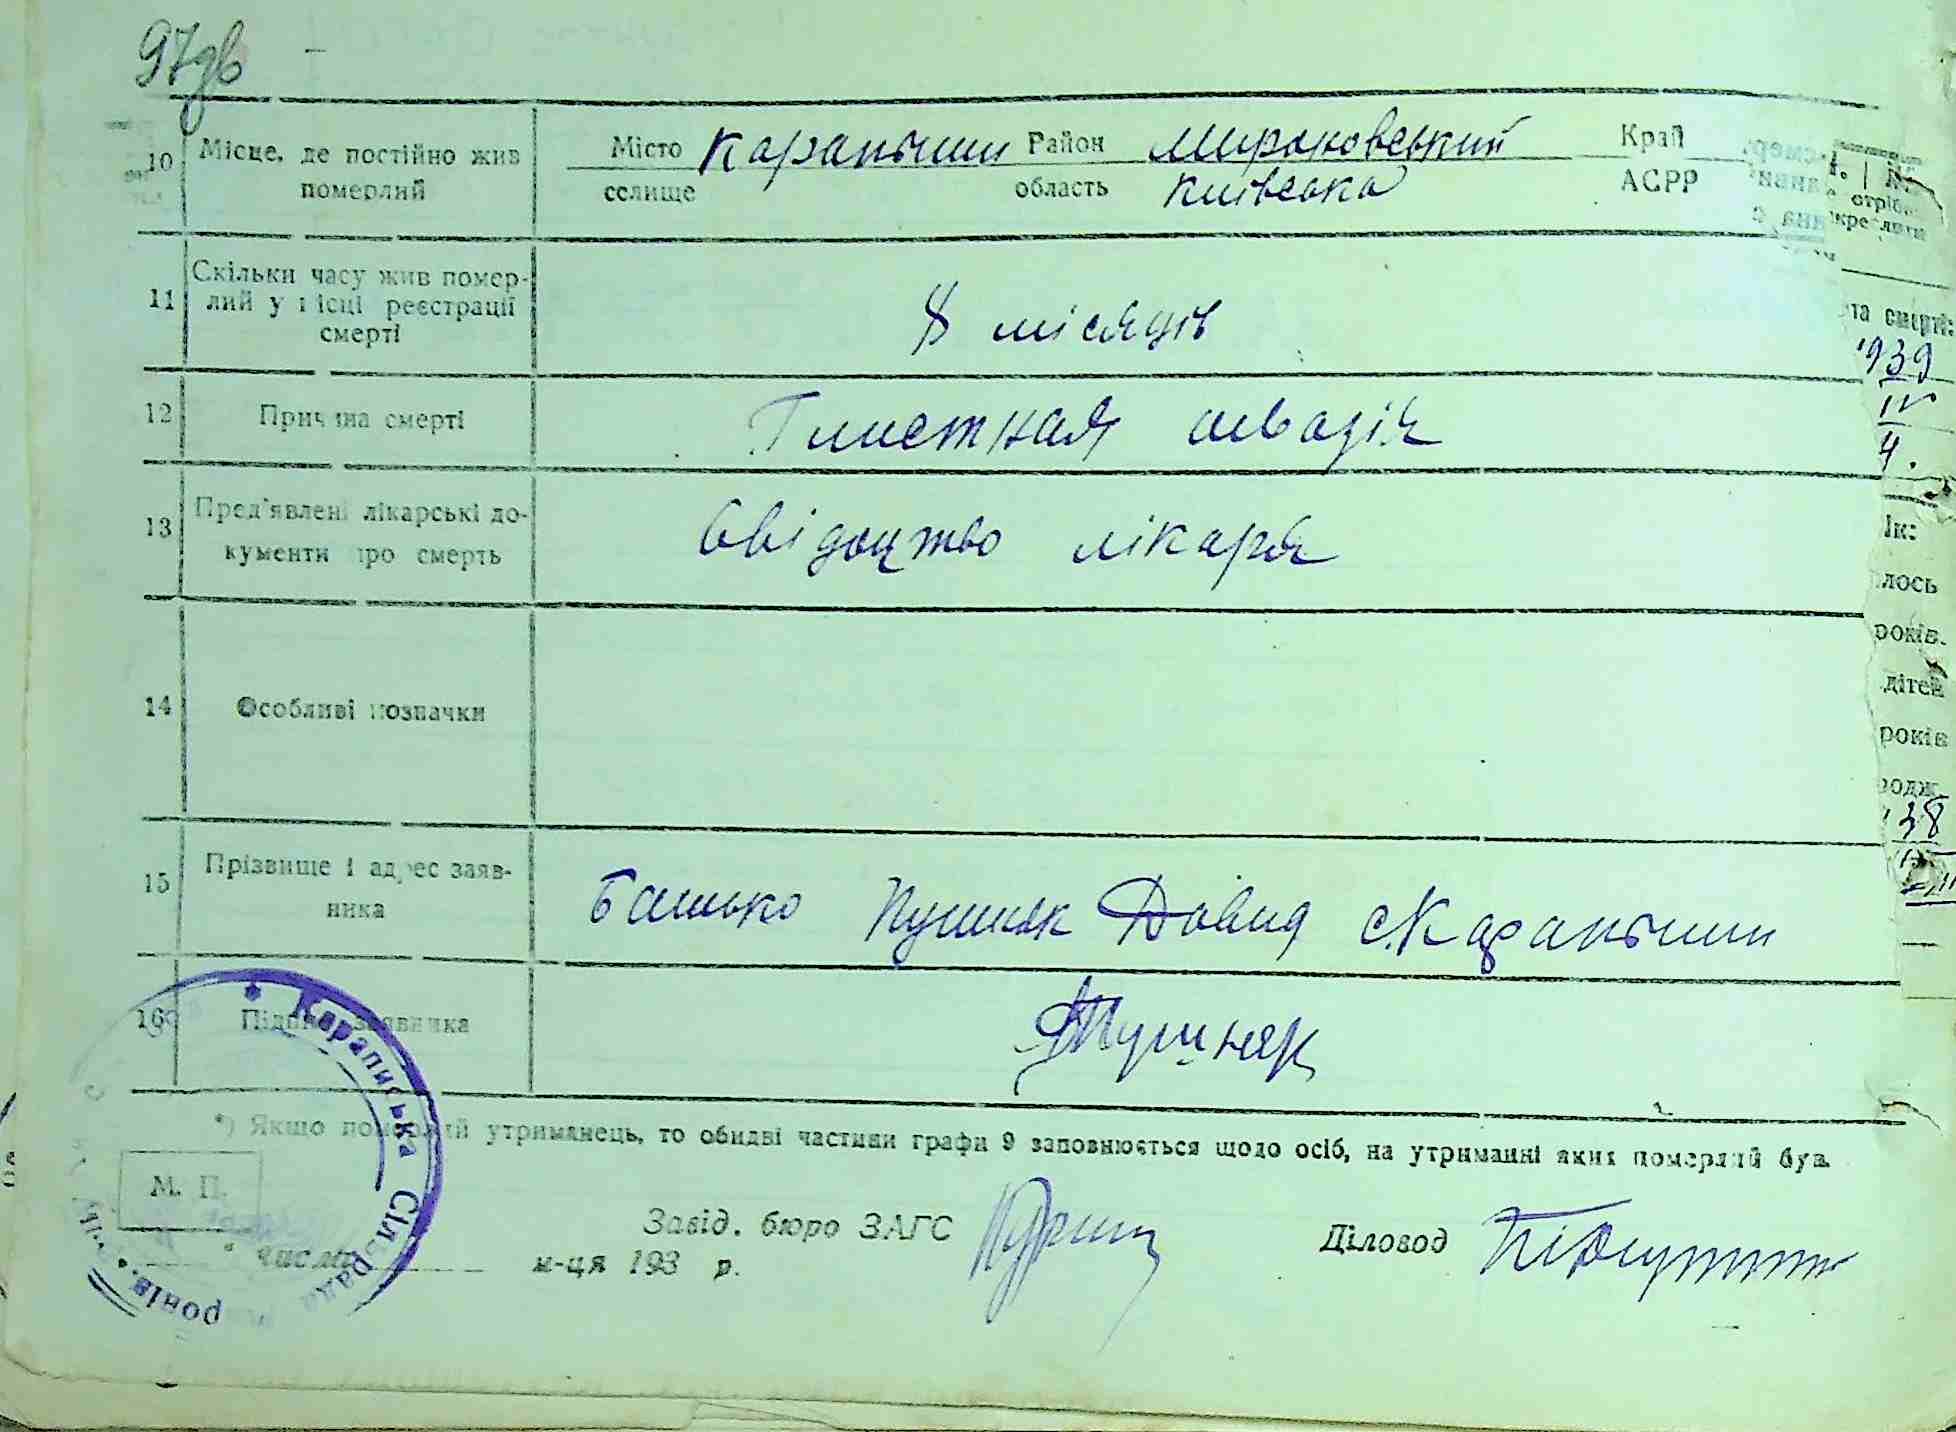 97зв
10 Місце, де постійно жив померлий Місто селище Карапыши Район Мироновський область Київська Край АСРР
11 Скільки часу жив померлий у місці реєстрації смерті 8 місяців
12 Причина смерті Глистная инвазія
13 Пред'явлені лікарські документи про смерть Свідоцтво лікаря
14 Особливі позначки
15 Прізвище і адрес заявника Батько Пушняк Давид с Карапыши
16 Підпис заявника Пушняк
*) Якщо померлий утриманець, то обидві частини графи 9 заповнюється щодо осіб, на утриманні яких померлий був.
М. П.
Завід. бюро ЗАГС
Діловод
" числа м-ця 193 р.
* Караписька Сільрада
та смерті:
1939
IV
4.
Ік:
лось
років.
дітей
років
родж.
38